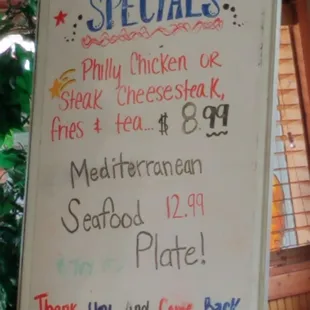 SPECIALS
Philly Chicken OR
Steak Cheesesteak,
fries & tea... $ 8.99
Mediterranean
Seafood 12.99
Plate!
Thank You and Come Back